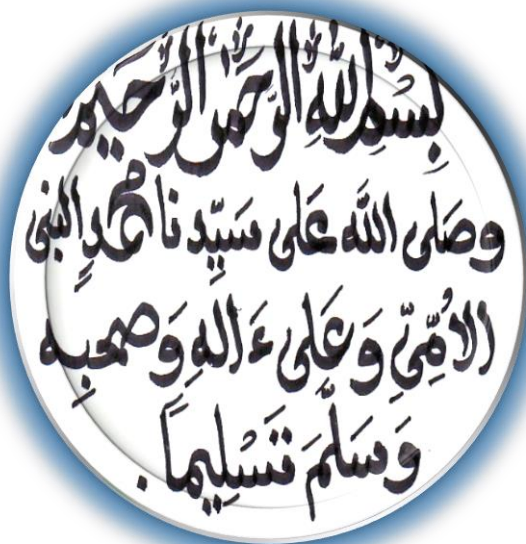 بِسْمِ اللَّهِ الرَّحْمٰنِ الرَّحِيمِ
وصَلى اللَّه عَلى سَيِّدنا محمدٍ النبى
الاُمِّيِّ وَعَلى ءَالهِ وَصحبِه
وَسَلَّمَ تَسْلِيماً.